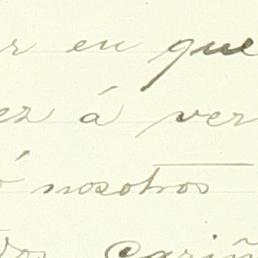 r en que
ez á ver
ó nosotros
dos Cariñ